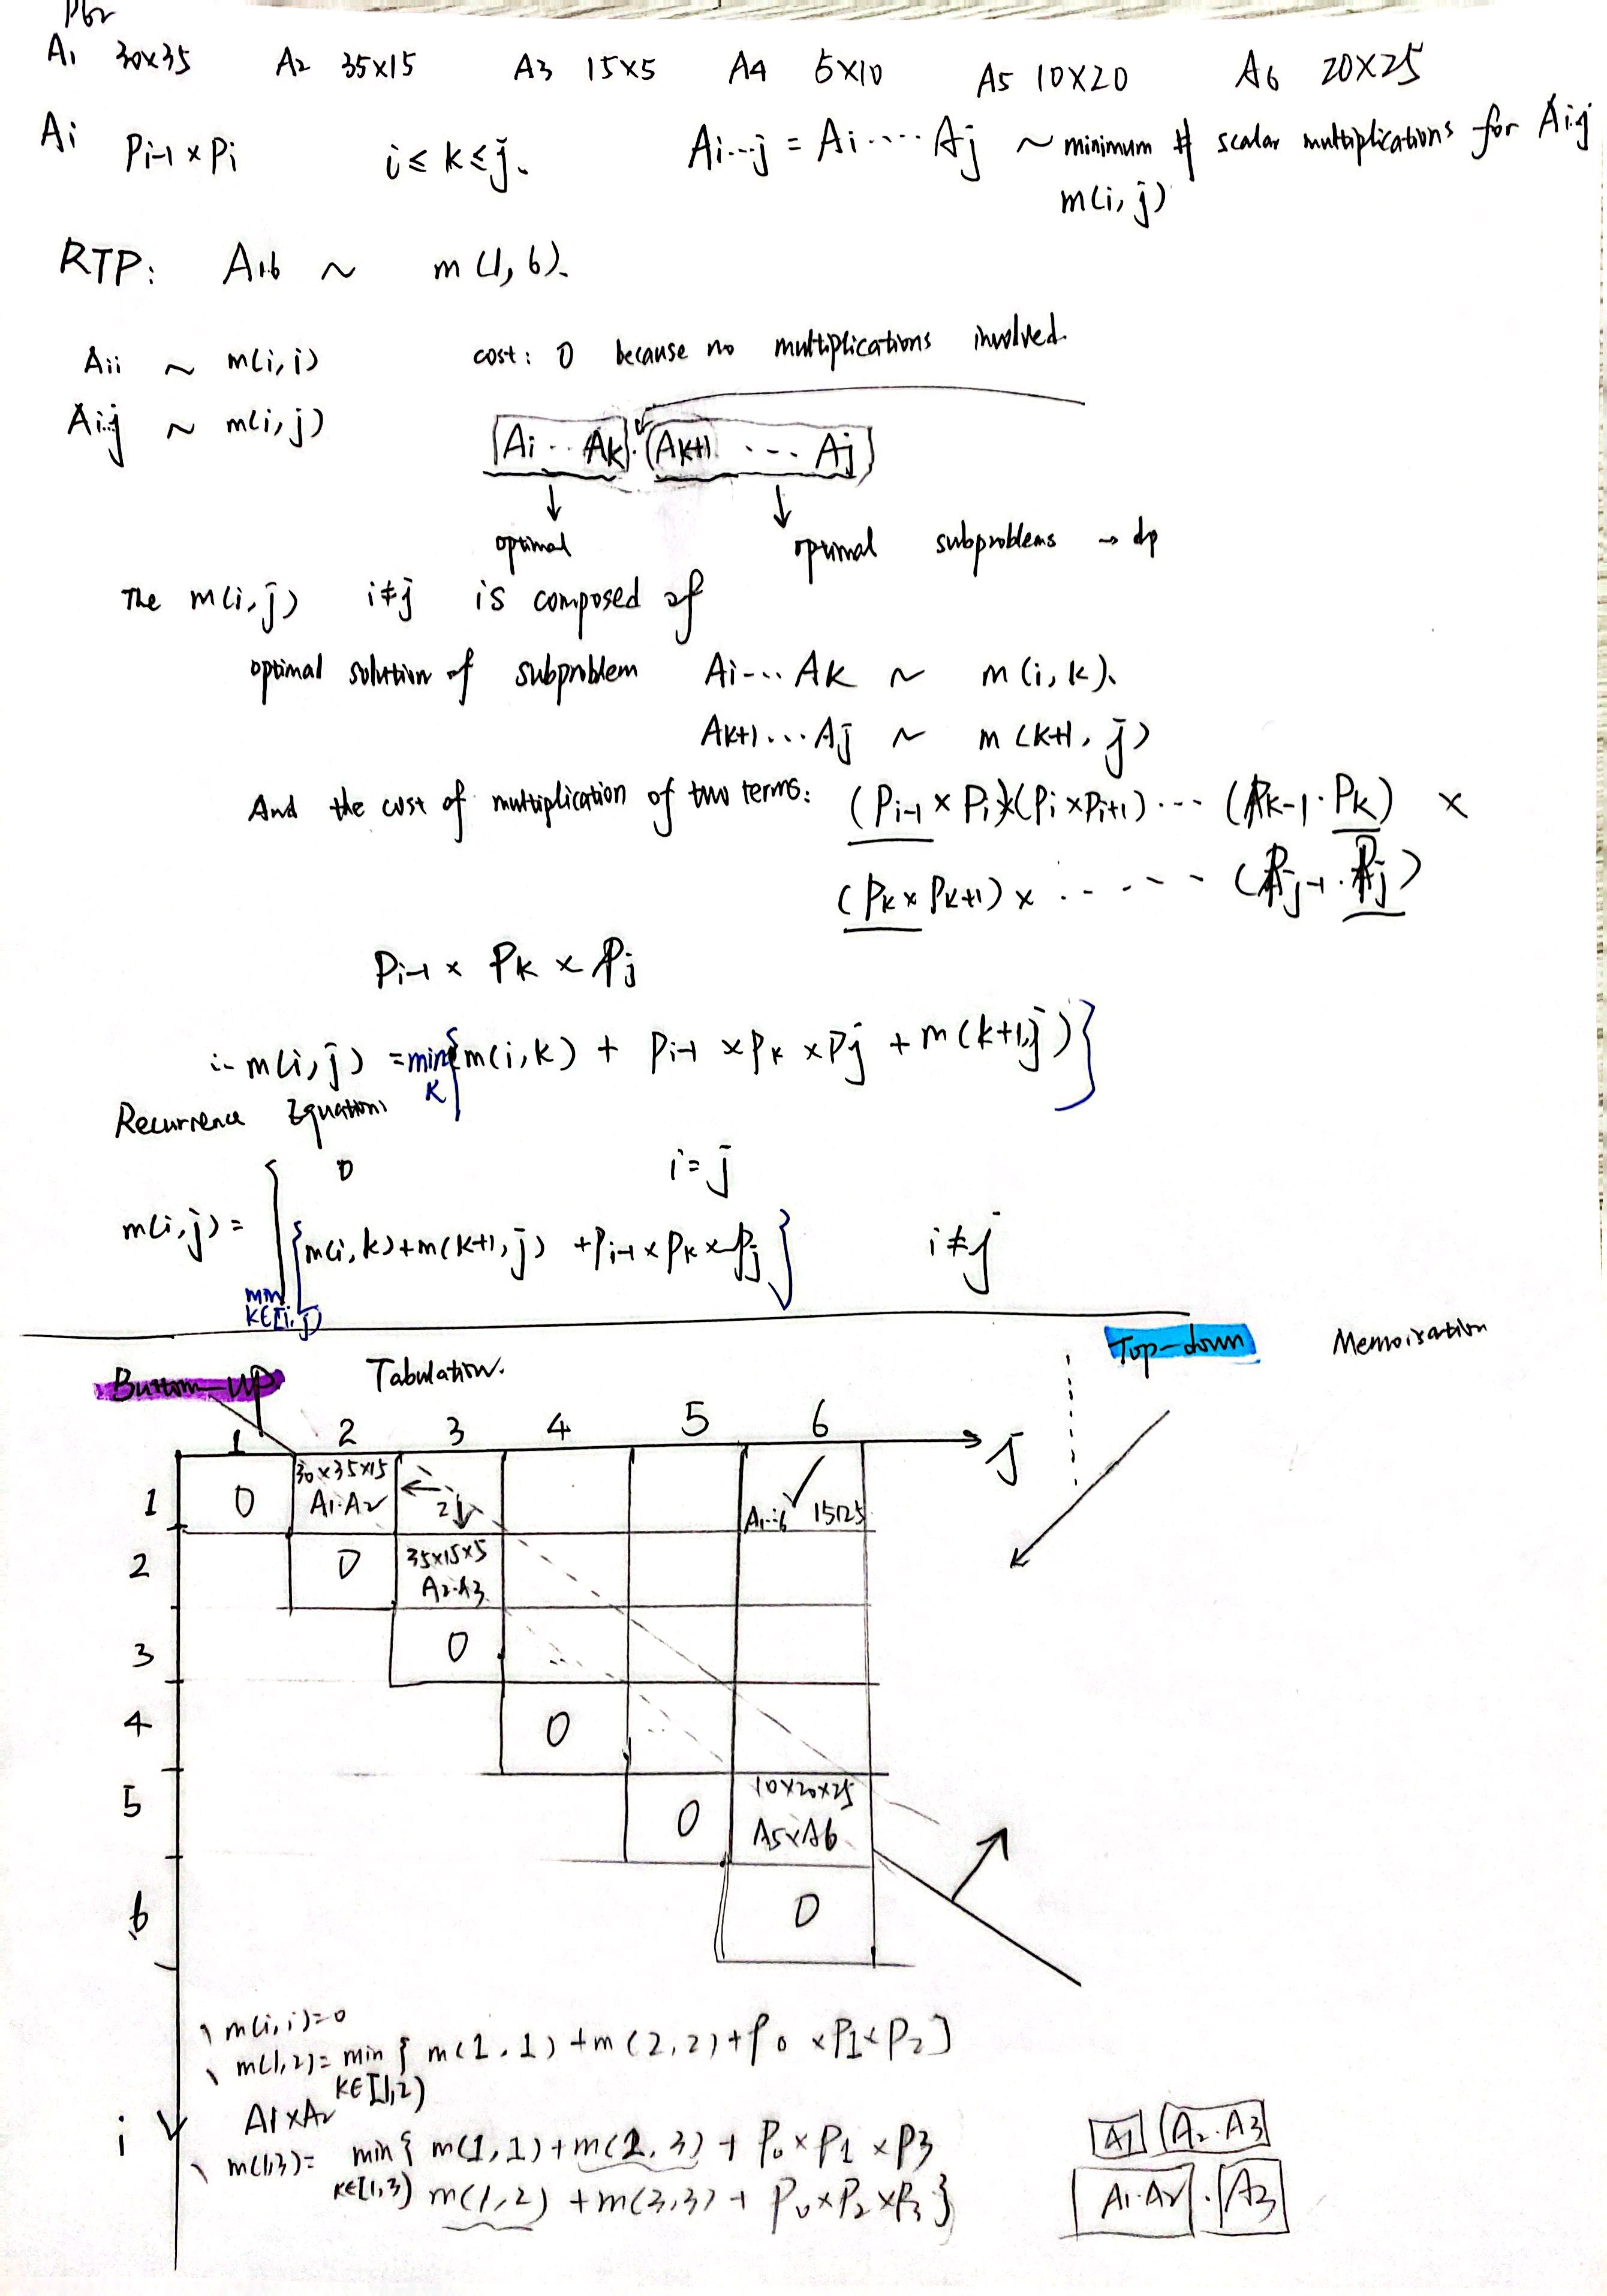 A1 30×35 A2 35×15 A3 15×5 A4 5×10 A5 10×20 A6 20×25
Ai Pi-1 × Pi i ≤ k ≤ j. Ai...j = Ai .... Aj ~ minimum # scalar multiplications for Ai..j
m(i, j)
RTP: A1..6 ~ m(1, 6).
Aii ~ m(i, i) cost: 0 because no multiplications involved.
Ai..j ~ m(i, j)
(Ai ... Ak) · (Ak+1 ... Aj)
↓ ↓
optimal optimal subproblems → dp
The m(i, j) i≠j is composed of
optimal solution of subproblem Ai ... Ak ~ m(i, k).
Ak+1 ... Aj ~ m(k+1, j)
And the cost of multiplication of two terms: (Pi-1 × Pi)×(Pi × Pi+1) ... (Pk-1 · Pk) ×
(Pk × Pk+1) × ...... (Pj-1 · Pj)
Pi-1 × Pk × Pj
∴ m(i, j) = min { m(i, k) + Pi-1 × Pk × Pj + m(k+1, j) }
k
Recurrence Equation:
0 i = j
m(i, j) = { { m(i, k) + m(k+1, j) + Pi-1 × Pk × Pj } i ≠ j
min
k∈[i, j)
Top-down Memoisation
Buttom-up Tabulation.
1 2 3 4 5 6 j
1 0 30×35×15 2 A1..6 ✓ 15125
A1·A2
2 0 35×15×5
A2·A3
3 0
4 0
5 0 10×20×25
A5×A6
6 0
m(i, i)=0
m(1,2)= min { m(1, 1) + m(2, 2) + P0 × P1 × P2 }
k∈[1,2)
A1×A2
i
m(1,3)= min { m(1, 1) + m(2, 3) + P0 × P1 × P3 A1 A2·A3
k∈[1,3) m(1, 2) + m(3, 3) + P0 × P2 × P3 } A1·A2 · A3